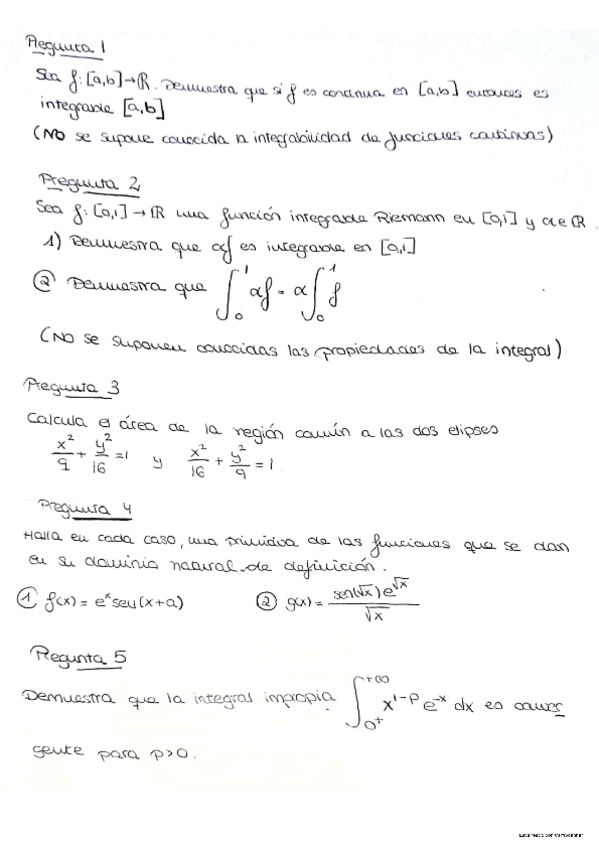 Pregunta 1
Sea f: [a,b]→ℝ. Demuestra que si f es continua en [a,b] entonces es
integrable [a,b]
(NO se supone conocida la integrabilidad de funciones continuas)
Pregunta 2
Sea f: [0,1]→ℝ una función integrable Riemann en [0,1] y α∈ℝ.
1) Demuestra que αf es integrable en [0,1]
② Demuestra que ∫₀¹ αf = α∫₀¹ f
(NO se suponen conocidas las propiedades de la integral)
Pregunta 3
Calcula el área de la región común a las dos elipses
x²/9 + y²/16 = 1 y x²/16 + y²/9 = 1.
Pregunta 4
Halla en cada caso, una primitiva de las funciones que se dan
en su dominio natural de definición.
① f(x) = eˣ sen(x+a) ② g(x) = sen(√x) e^√x / √x
Pregunta 5
Demuestra que la integral impropia ∫₀₊^+∞ x^(1-p) e^(-x) dx es conver
gente para p>0.